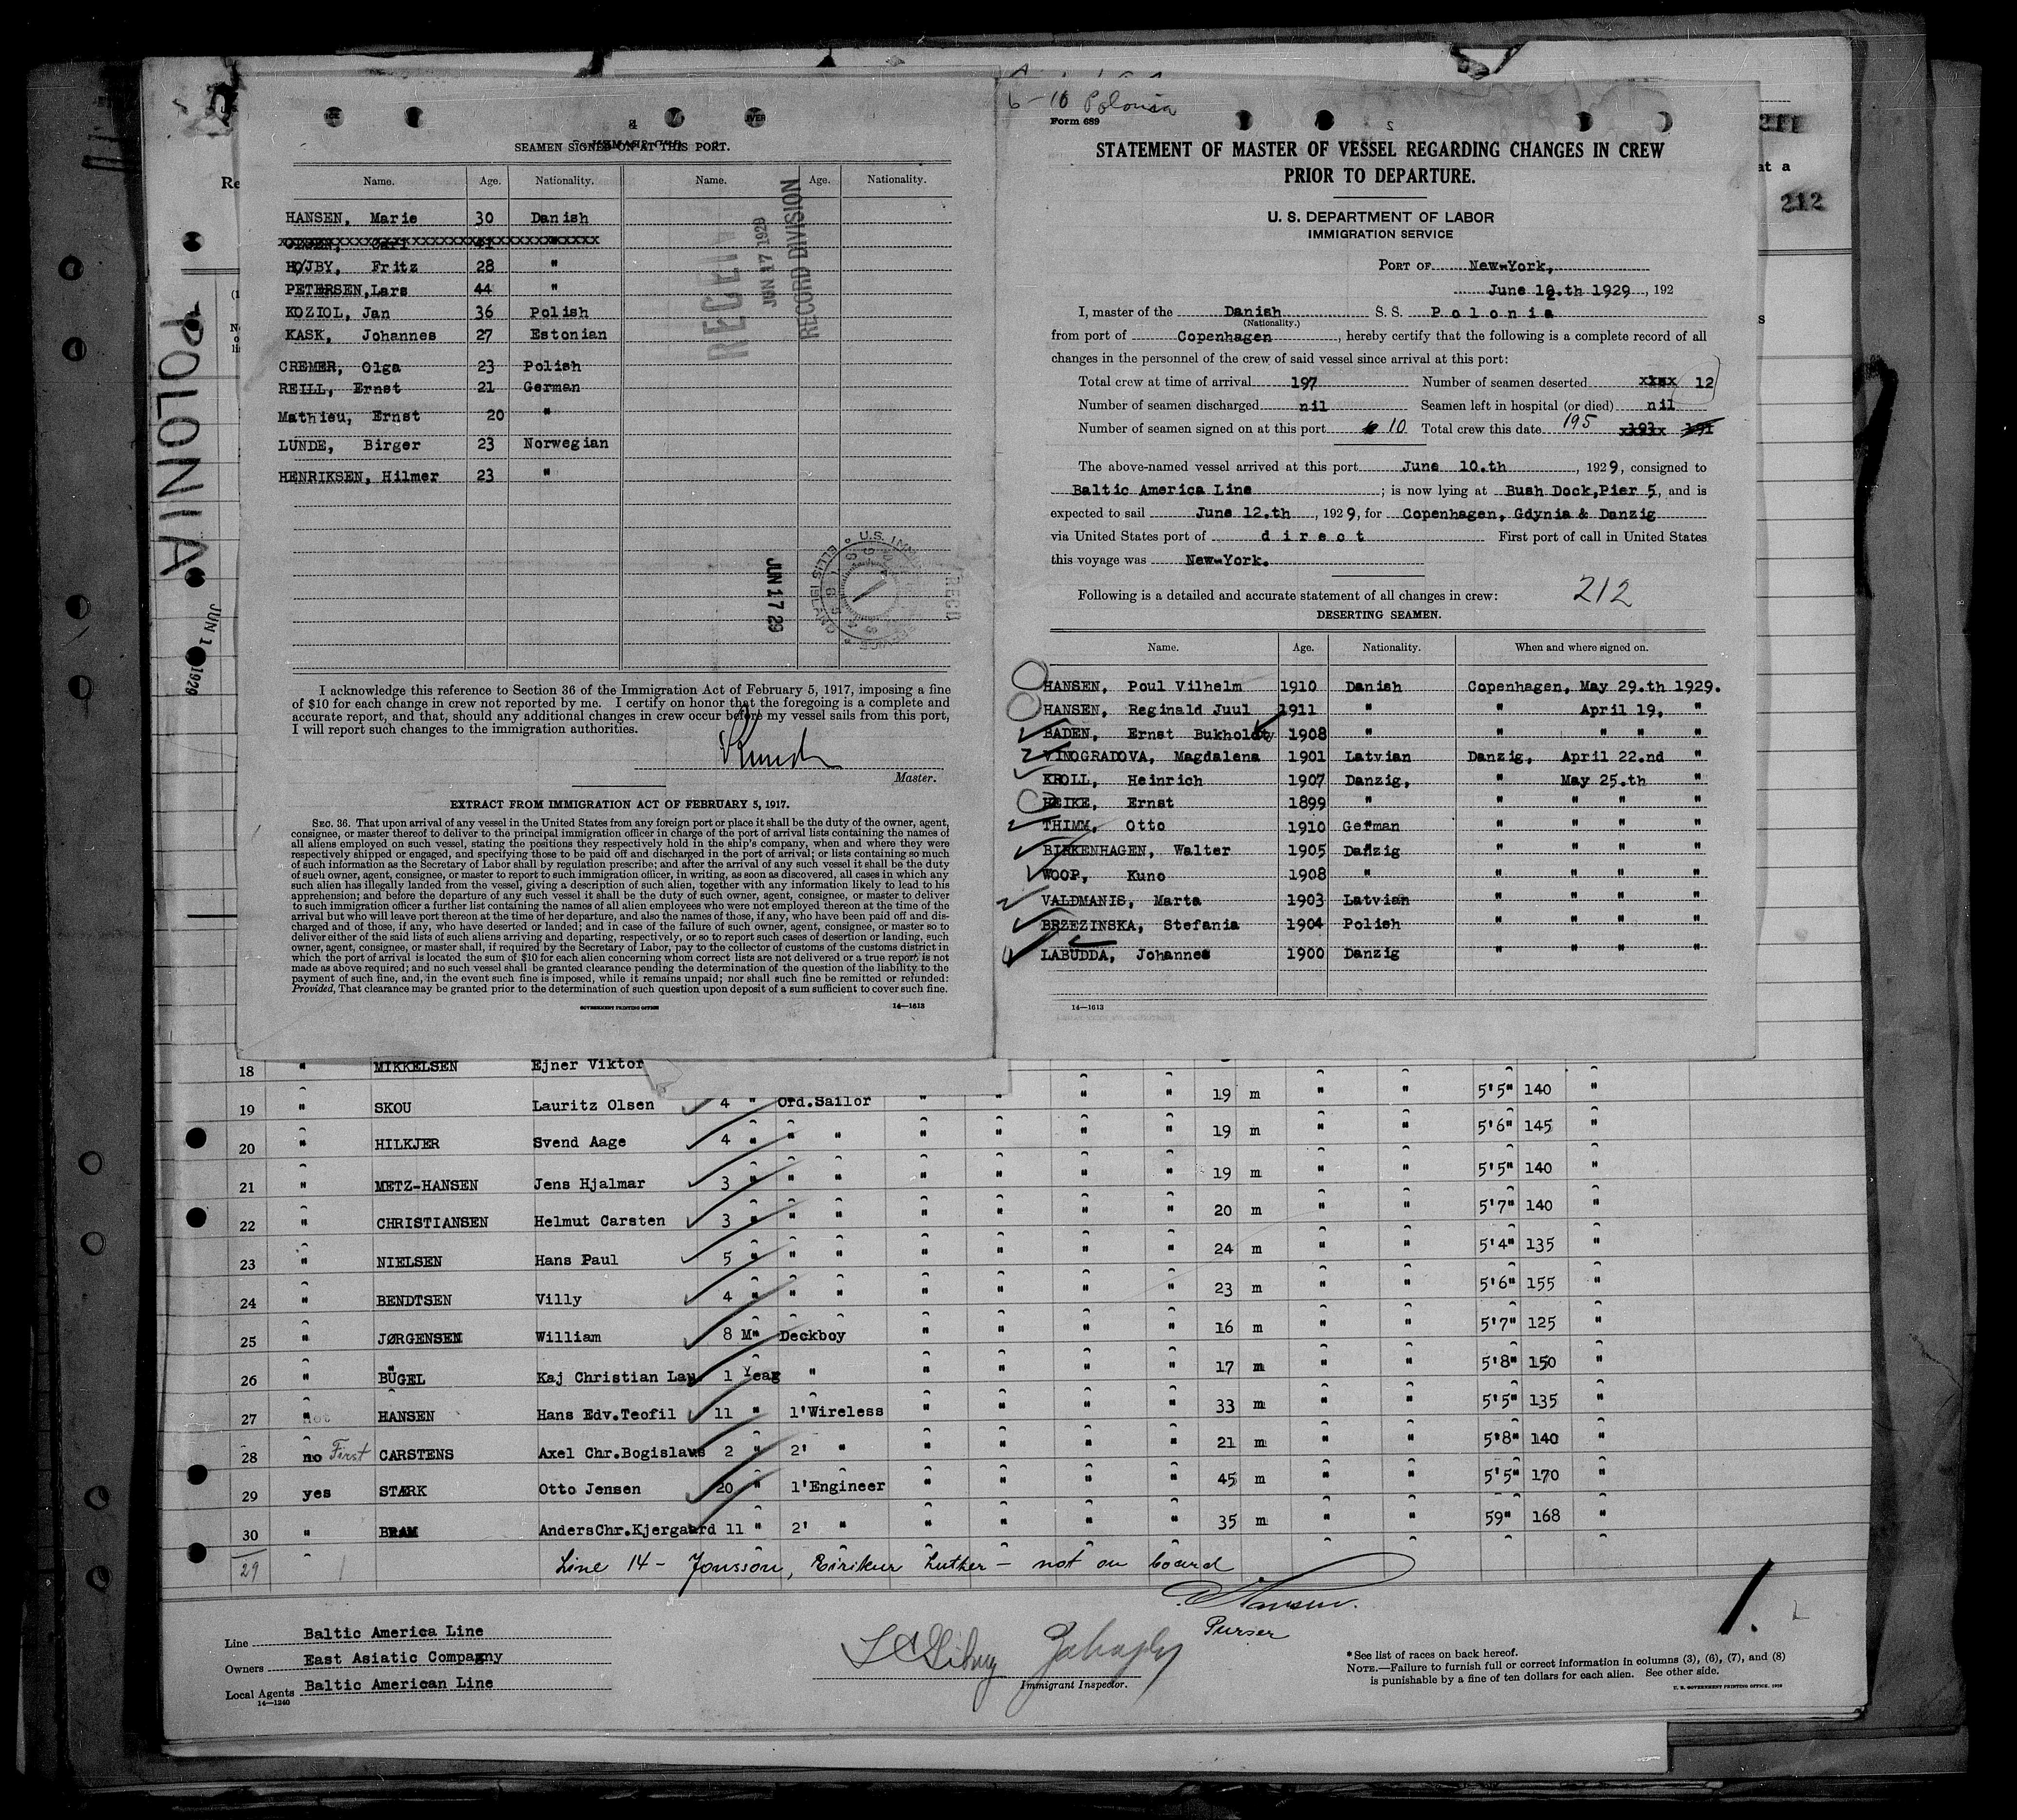 POLONIA
JUN 1 1929
4
SEAMEN SIGNED ON AT THIS PORT.
Name. Age. Nationality. Name. Age. Nationality.
HANSEN, Marie 30 Danish
HØJBY, Fritz 28 "
PETERSEN, Lars 44 "
KOZIOL, Jan 36 Polish
KASK, Johannes 27 Estonian
CREMER, Olga 23 Polish
REILL, Ernst 21 German
Mathieu, Ernst 20 "
LUNDE, Birger 23 Norwegian
HENRIKSEN, Hilmer 23 "
JUN 17 1929
RECORD DIVISION
JUN 17 29
RECD
I acknowledge this reference to Section 36 of the Immigration Act of February 5, 1917, imposing a fine
of $10 for each change in crew not reported by me. I certify on honor that the foregoing is a complete and
accurate report, and that, should any additional changes in crew occur before my vessel sails from this port,
I will report such changes to the immigration authorities.
Master.
EXTRACT FROM IMMIGRATION ACT OF FEBRUARY 5, 1917.
SEC. 36. That upon arrival of any vessel in the United States from any foreign port or place it shall be the duty of the owner, agent,
consignee, or master thereof to deliver to the principal immigration officer in charge of the port of arrival lists containing the names of
all aliens employed on such vessel, stating the positions they respectively hold in the ship's company, when and where they were
respectively shipped or engaged, and specifying those to be paid off and discharged in the port of arrival; or lists containing so much
of such information as the Secretary of Labor shall by regulation prescribe; and after the arrival of any such vessel it shall be the duty
of such owner, agent, consignee, or master to report to such immigration officer, in writing, as soon as discovered, all cases in which any
such alien has illegally landed from the vessel, giving a description of such alien, together with any information likely to lead to his
apprehension; and before the departure of any such vessel it shall be the duty of such owner, agent, consignee, or master to deliver
to such immigration officer a further list containing the names of all alien employees who were not employed thereon at the time of the
arrival but who will leave port thereon at the time of her departure, and also the names of those, if any, who have been paid off and dis-
charged and of those, if any, who have deserted or landed; and in case of the failure of such owner, agent, consignee, or master so to
deliver either of the said lists of such aliens arriving and departing, respectively, or so to report such cases of desertion or landing, such
owner, agent, consignee, or master shall, if required by the Secretary of Labor, pay to the collector of customs of the customs district in
which the port of arrival is located the sum of $10 for each alien concerning whom correct lists are not delivered or a true report is not
made as above required; and no such vessel shall be granted clearance pending the determination of the question of the liability to the
payment of such fine, and, in the event such fine is imposed, while it remains unpaid; nor shall such fine be remitted or refunded:
Provided, That clearance may be granted prior to the determination of such question upon deposit of a sum sufficient to cover such fine.
GOVERNMENT PRINTING OFFICE 14—1613
6-10 Polonia
Form 689
STATEMENT OF MASTER OF VESSEL REGARDING CHANGES IN CREW
PRIOR TO DEPARTURE.
U. S. DEPARTMENT OF LABOR
IMMIGRATION SERVICE
PORT OF New-York,
June 12.th 1929, 192
I, master of the Danish S. S. Polonia
(Nationality.)
from port of Copenhagen, hereby certify that the following is a complete record of all
changes in the personnel of the crew of said vessel since arrival at this port:
Total crew at time of arrival 197 Number of seamen deserted 12
Number of seamen discharged nil Seamen left in hospital (or died) nil
Number of seamen signed on at this port 10 Total crew this date 195 193 191
The above-named vessel arrived at this port June 10.th, 1929, consigned to
Baltic America Line; is now lying at Bush Dock,Pier 5, and is
expected to sail June 12.th, 1929, for Copenhagen, Gdynia & Danzig
via United States port of direct First port of call in United States
this voyage was New-York.
Following is a detailed and accurate statement of all changes in crew: 212
DESERTING SEAMEN.
Name. Age. Nationality. When and where signed on.
HANSEN, Poul Vilhelm 1910 Danish Copenhagen, May 29.th 1929.
HANSEN, Reginald Juul 1911 " " April 19, "
BADEN, Ernst Bukholdty 1908 " " " " "
VINOGRADOVA, Magdalena 1901 Latvian Danzig, April 22.nd "
KROLL, Heinrich 1907 Danzig, " May 25.th "
HEIKE, Ernst 1899 " " " " "
THIMM, Otto 1910 German " " " "
BIRKENHAGEN, Walter 1905 Danzig " " " "
WOOP, Kuno 1908 " " " " "
VALDMANIS, Marta 1903 Latvian " " " "
BRZEZINSKA, Stefania 1904 Polish " " " "
LABUDDA, Johannes 1900 Danzig " " " "
14—1613
211
at a
212
18 " MIKKELSEN Ejner Viktor
19 " SKOU Lauritz Olsen 4 " Ord.Sailor " " " " 19 m " " 5'5" 140 "
20 " HILKJER Svend Aage 4 " " " " " " " 19 m " " 5'6" 145 "
21 " METZ-HANSEN Jens Hjalmar 3 " " " " " " " 19 m " " 5'5" 140 "
22 " CHRISTIANSEN Helmut Carsten 3 " " " " " " " 20 m " " 5'7" 140 "
23 " NIELSEN Hans Paul 5 " " " " " " " 24 m " " 5'4" 135 "
24 " BENDTSEN Villy 4 " " " " " " " 23 m " " 5'6" 155 "
25 " JØRGENSEN William 8 M" Deckboy " " " " 16 m " " 5'7" 125 "
26 " BÜGEL Kaj Christian Lau 1 Year " " " " " 17 m " " 5'8" 150 "
27 " HANSEN Hans Edv.Teofil 11 " 1'Wireless " " " " 33 m " " 5'5" 135 "
28 no First CARSTENS Axel Chr.Bogislaus 2 " 2' " " " " " 21 m " " 5'8" 140 "
29 yes STÆRK Otto Jensen 20 " 1'Engineer " " " " 45 m " " 5'5" 170 "
30 " BRAM AndersChr.Kjergaard 11 " 2' " " " " " 35 m " " 59" 168 "
29 1 Line 14 - Jonsson, Eirikur Luther - not on board
Hansen.
Purser
1.
Line Baltic America Line
Owners East Asiatic Company
Local Agents Baltic American Line
14—1240
Immigrant Inspector.
*See list of races on back hereof.
NOTE.—Failure to furnish full or correct information in columns (3), (6), (7), and (8)
is punishable by a fine of ten dollars for each alien. See other side.
U. S. GOVERNMENT PRINTING OFFICE. 1928